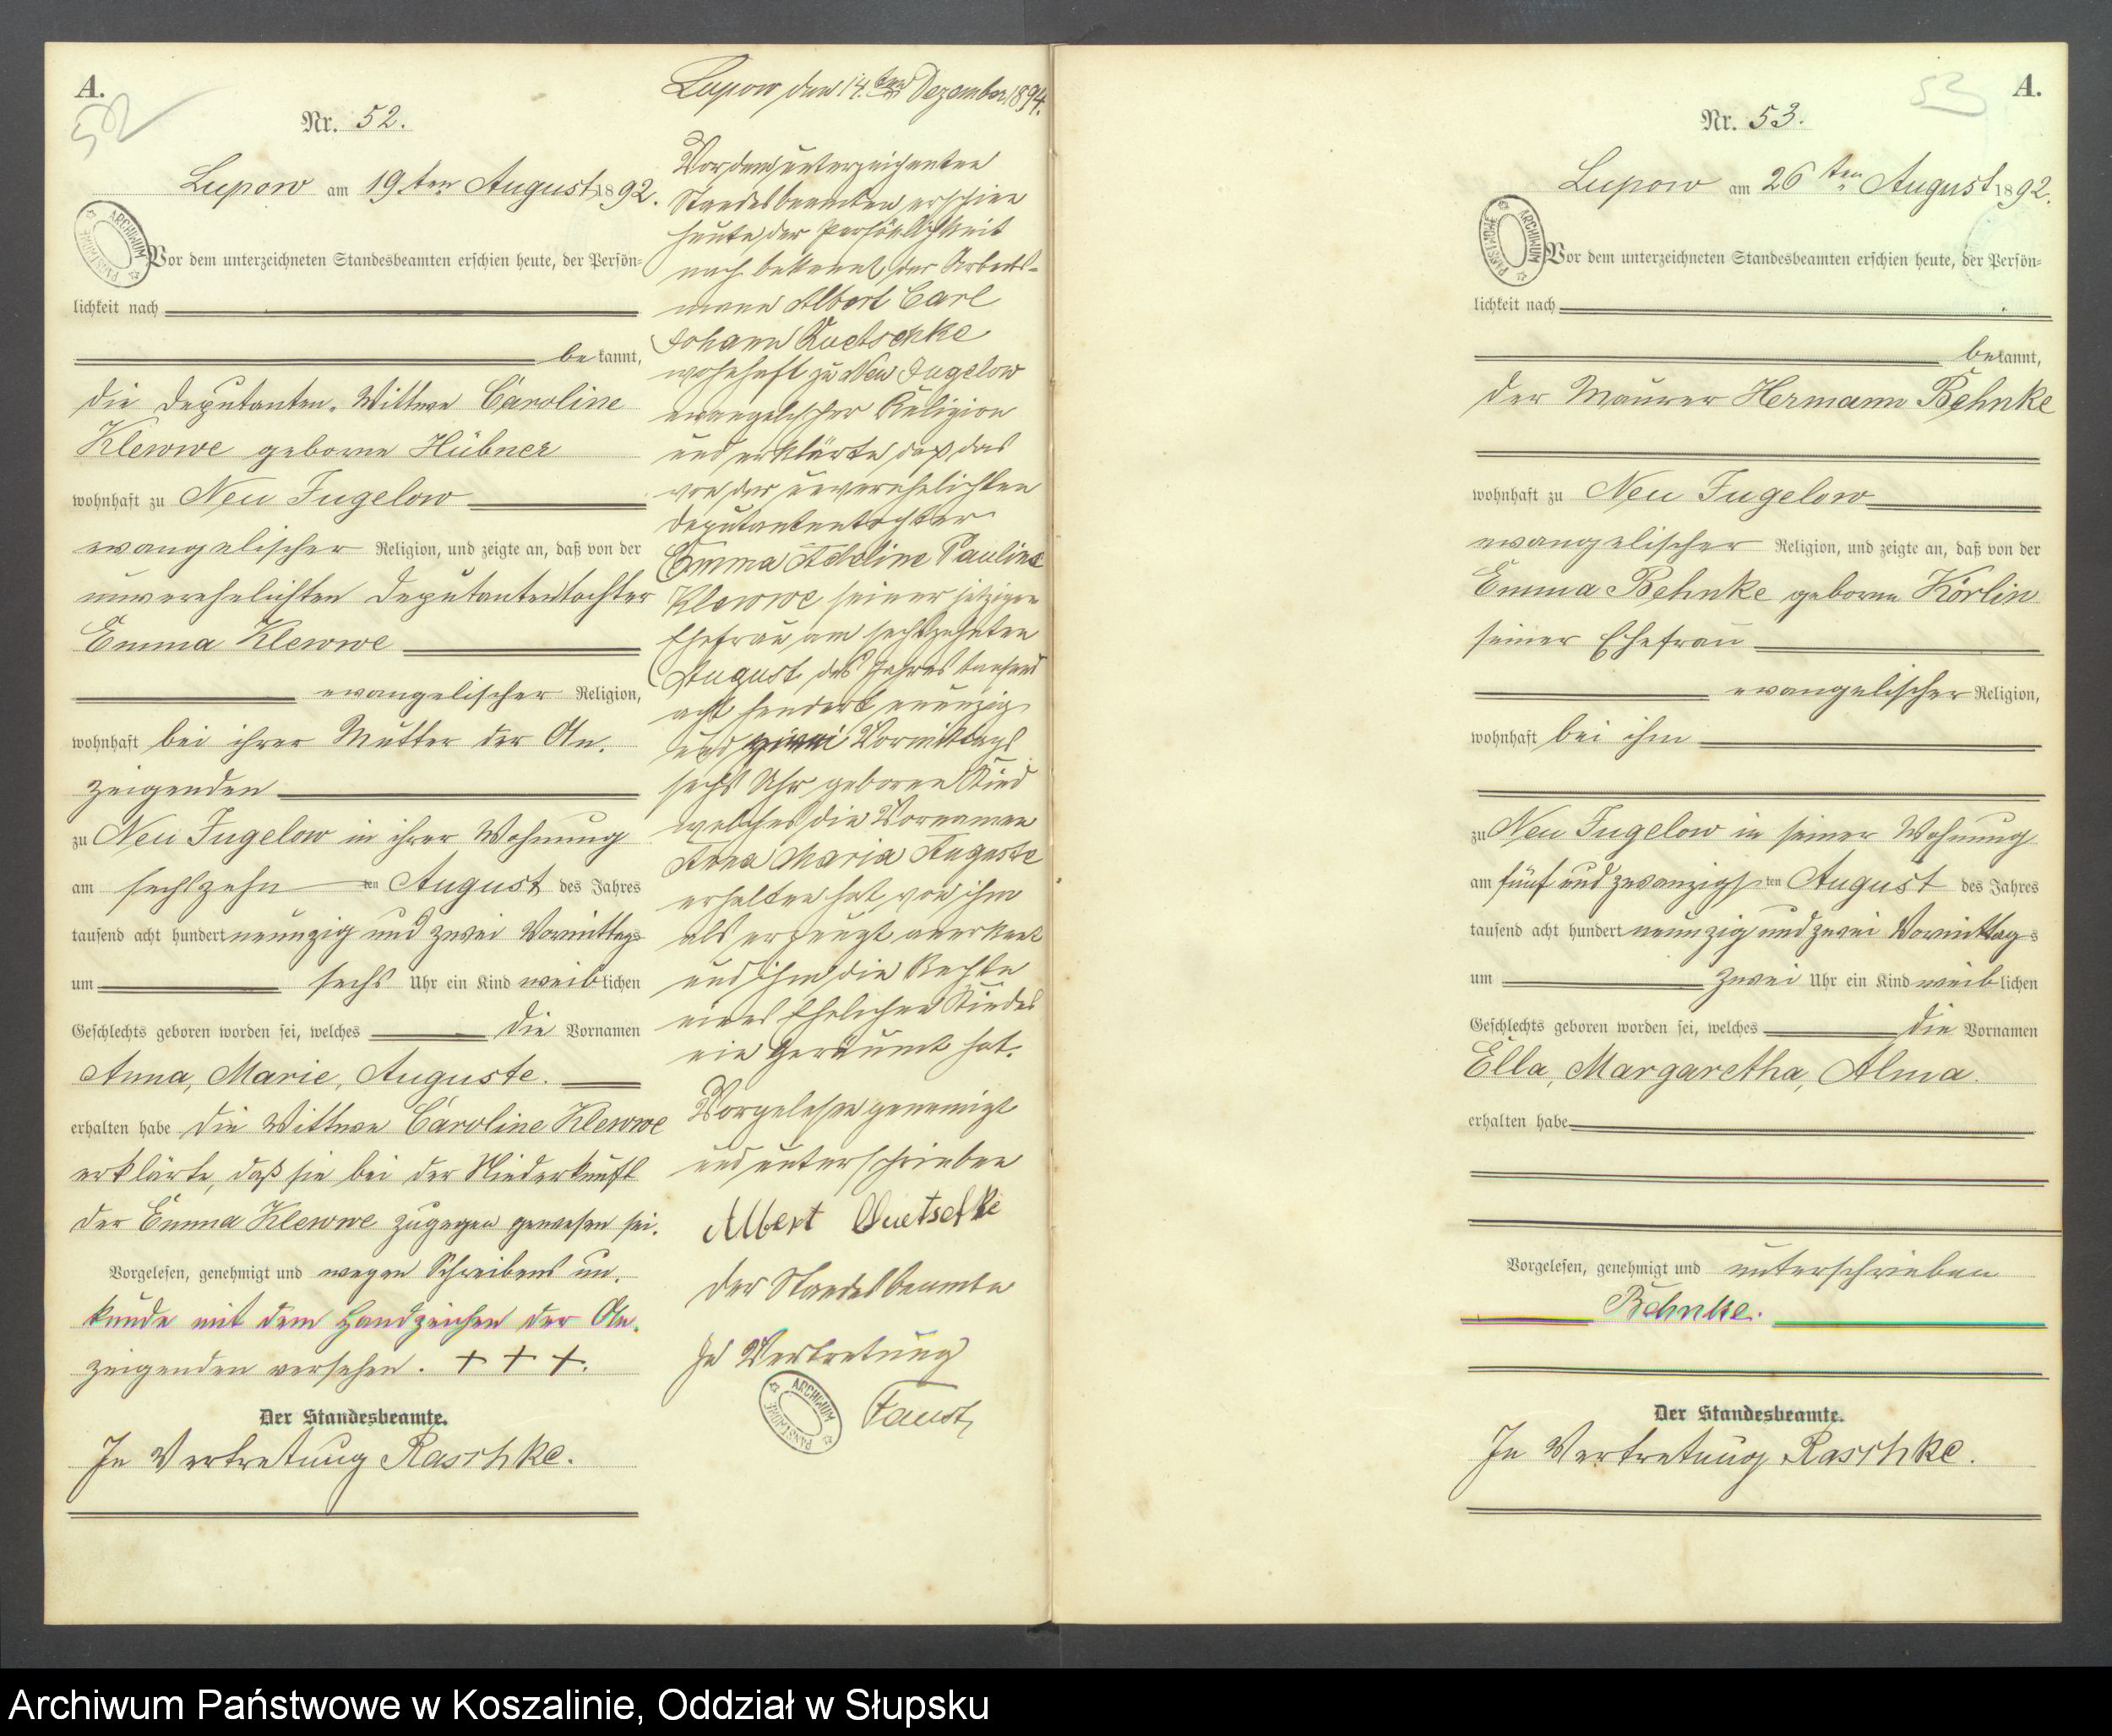 A.
52
Nr. 52.
Lupow am 19ten August 1892.
ARCHIWUM PAŃSTWOWE
Vor dem unterzeichneten Standesbeamten erschien heute, der Persön=
lichkeit nach
bekannt,
die Deputanten-Wittwe Caroline
Klewwe geborne Hübner
wohnhaft zu Neu Jugelow
evangelischer Religion, und zeigte an, daß von der
unverehelichten Deputantentochter
Emma Klewwe
evangelischer Religion,
wohnhaft bei ihrer Mutter der An-
zeigenden
zu Neu Jugelow in ihrer Wohnung
am sechszehn ten August des Jahres
tausend acht hundert neunzig und zwei Vormittags
um sechs Uhr ein Kind weiblichen
Geschlechts geboren worden sei, welches die Vornamen
Anna, Marie, Auguste.
erhalten habe die Wittwe Caroline Klewwe
erklärte, daß sie bei der Niederkunft
der Emma Klewwe zugegen gewesen sei.
Vorgelesen, genehmigt und wegen Schreibens un-
kunde mit dem Handzeichen der An-
zeigenden versehen. + + +.
Der Standesbeamte.
In Vertretung Raschke.
Lupow den 14.ten Dezember 1894.
Vor dem unterzeichneten
Standesbeamten erschien
heute, der Persönlichkeit
nach bekannt, der Arbeits-
mann Albert Carl
Johann Quetschke
wohnhaft zu Neu Jugelow
evangelischer Religion
und erklärte, daß das
von der unverehelichten
Deputantentochter
Emma Adeline Pauline
Klewwe seiner jetzigen
Ehefrau am sechszehnten
August des Jahres tausend
acht hundert neunzig
und zwei Vormittags
sechs Uhr geboren Kind
welches die Vornamen
Anna Maria Auguste
erhalten hat, von ihm
als erzeugt anerkent
und ihm die Rechte
eines Ehelichen Kindes
ein geräumt hat.
Vorgelesen genemigt
und unterschrieben
Albert Quetschke
Der Standesbeamte
In Vertretung
Faust
ARCHIWUM PAŃSTWOWE
53
A.
Nr. 53.
Lupow am 26ten August 1892.
ARCHIWUM PAŃSTWOWE
Vor dem unterzeichneten Standesbeamten erschien heute, der Persön=
lichkeit nach
bekannt,
der Maurer Hermann Behnke
wohnhaft zu Neu Jugelow
evangelischer Religion, und zeigte an, daß von der
Emma Behnke geborne Körlin
seiner Ehefrau
evangelischer Religion,
wohnhaft bei ihm
zu Neu Jugelow in seiner Wohnung
am fünf und zwanzigsten August des Jahres
tausend acht hundert neunzig und zwei Vormittags
um zwei Uhr ein Kind weiblichen
Geschlechts geboren worden sei, welches die Vornamen
Ella, Margaretha, Alma.
erhalten habe
Vorgelesen, genehmigt und unterschrieben
Behnke.
Der Standesbeamte.
In Vertretung Raschke.
Archiwum Państwowe w Koszalinie, Oddział w Słupsku